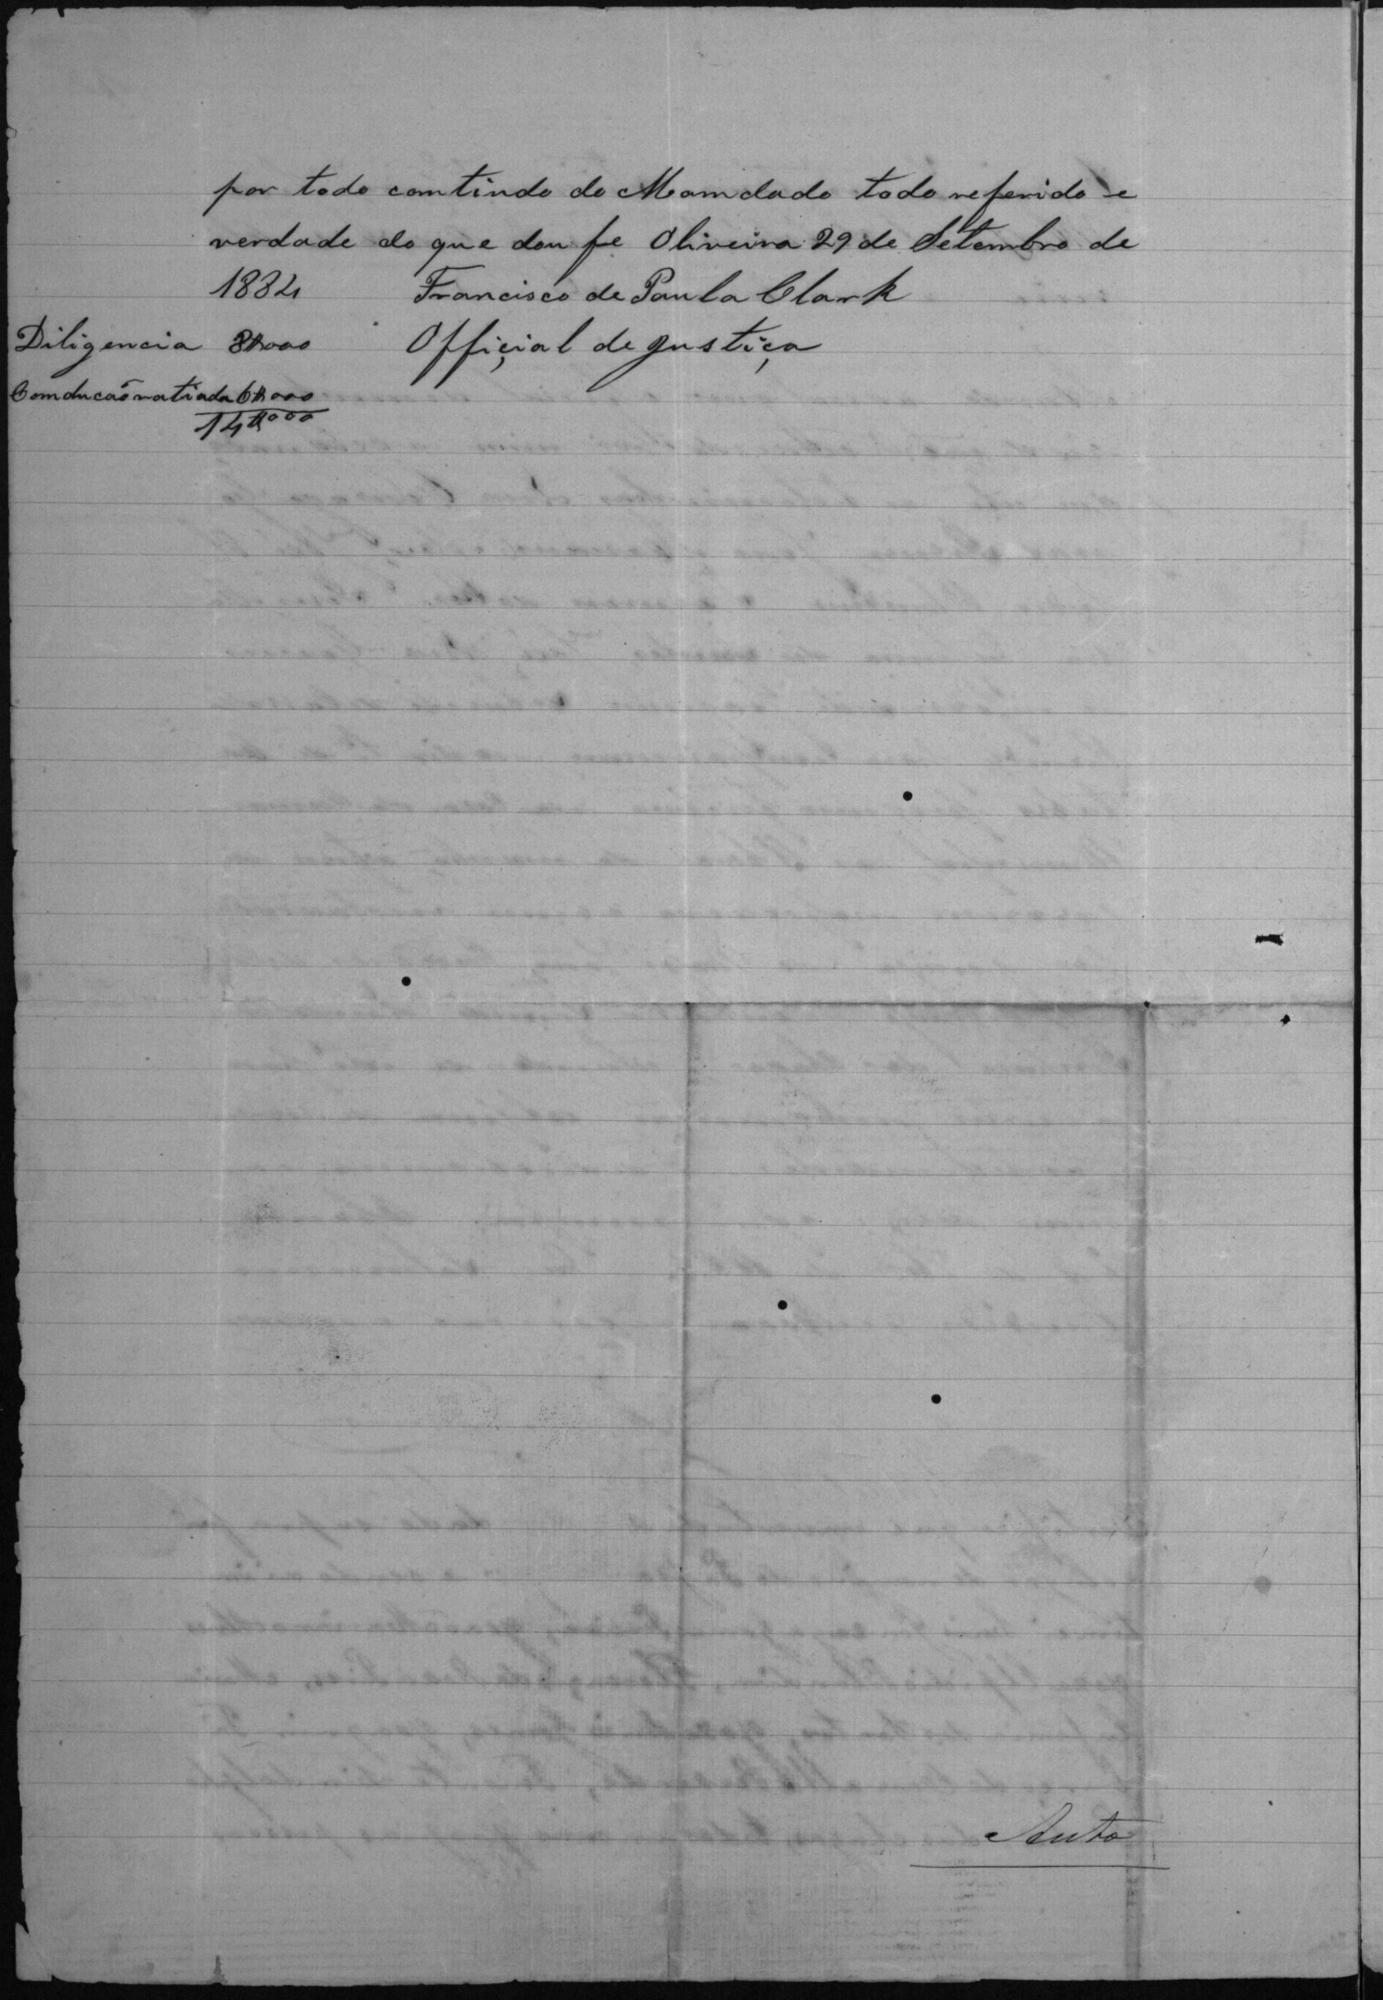 por todo comtindo do Mamdado todo referido e
verdade do que dou fe Oliveira 29 de Setembro de
1884 Francisco de Paula Clark
Diligencia 8$000 Offiçial de justiça
Comducaõ 6$000
14$000
Auto